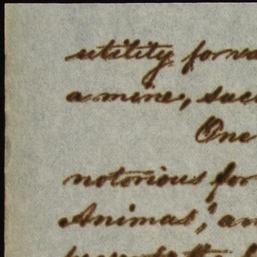 utility forwa
a mine, suc
One
notorious for
Animas", an